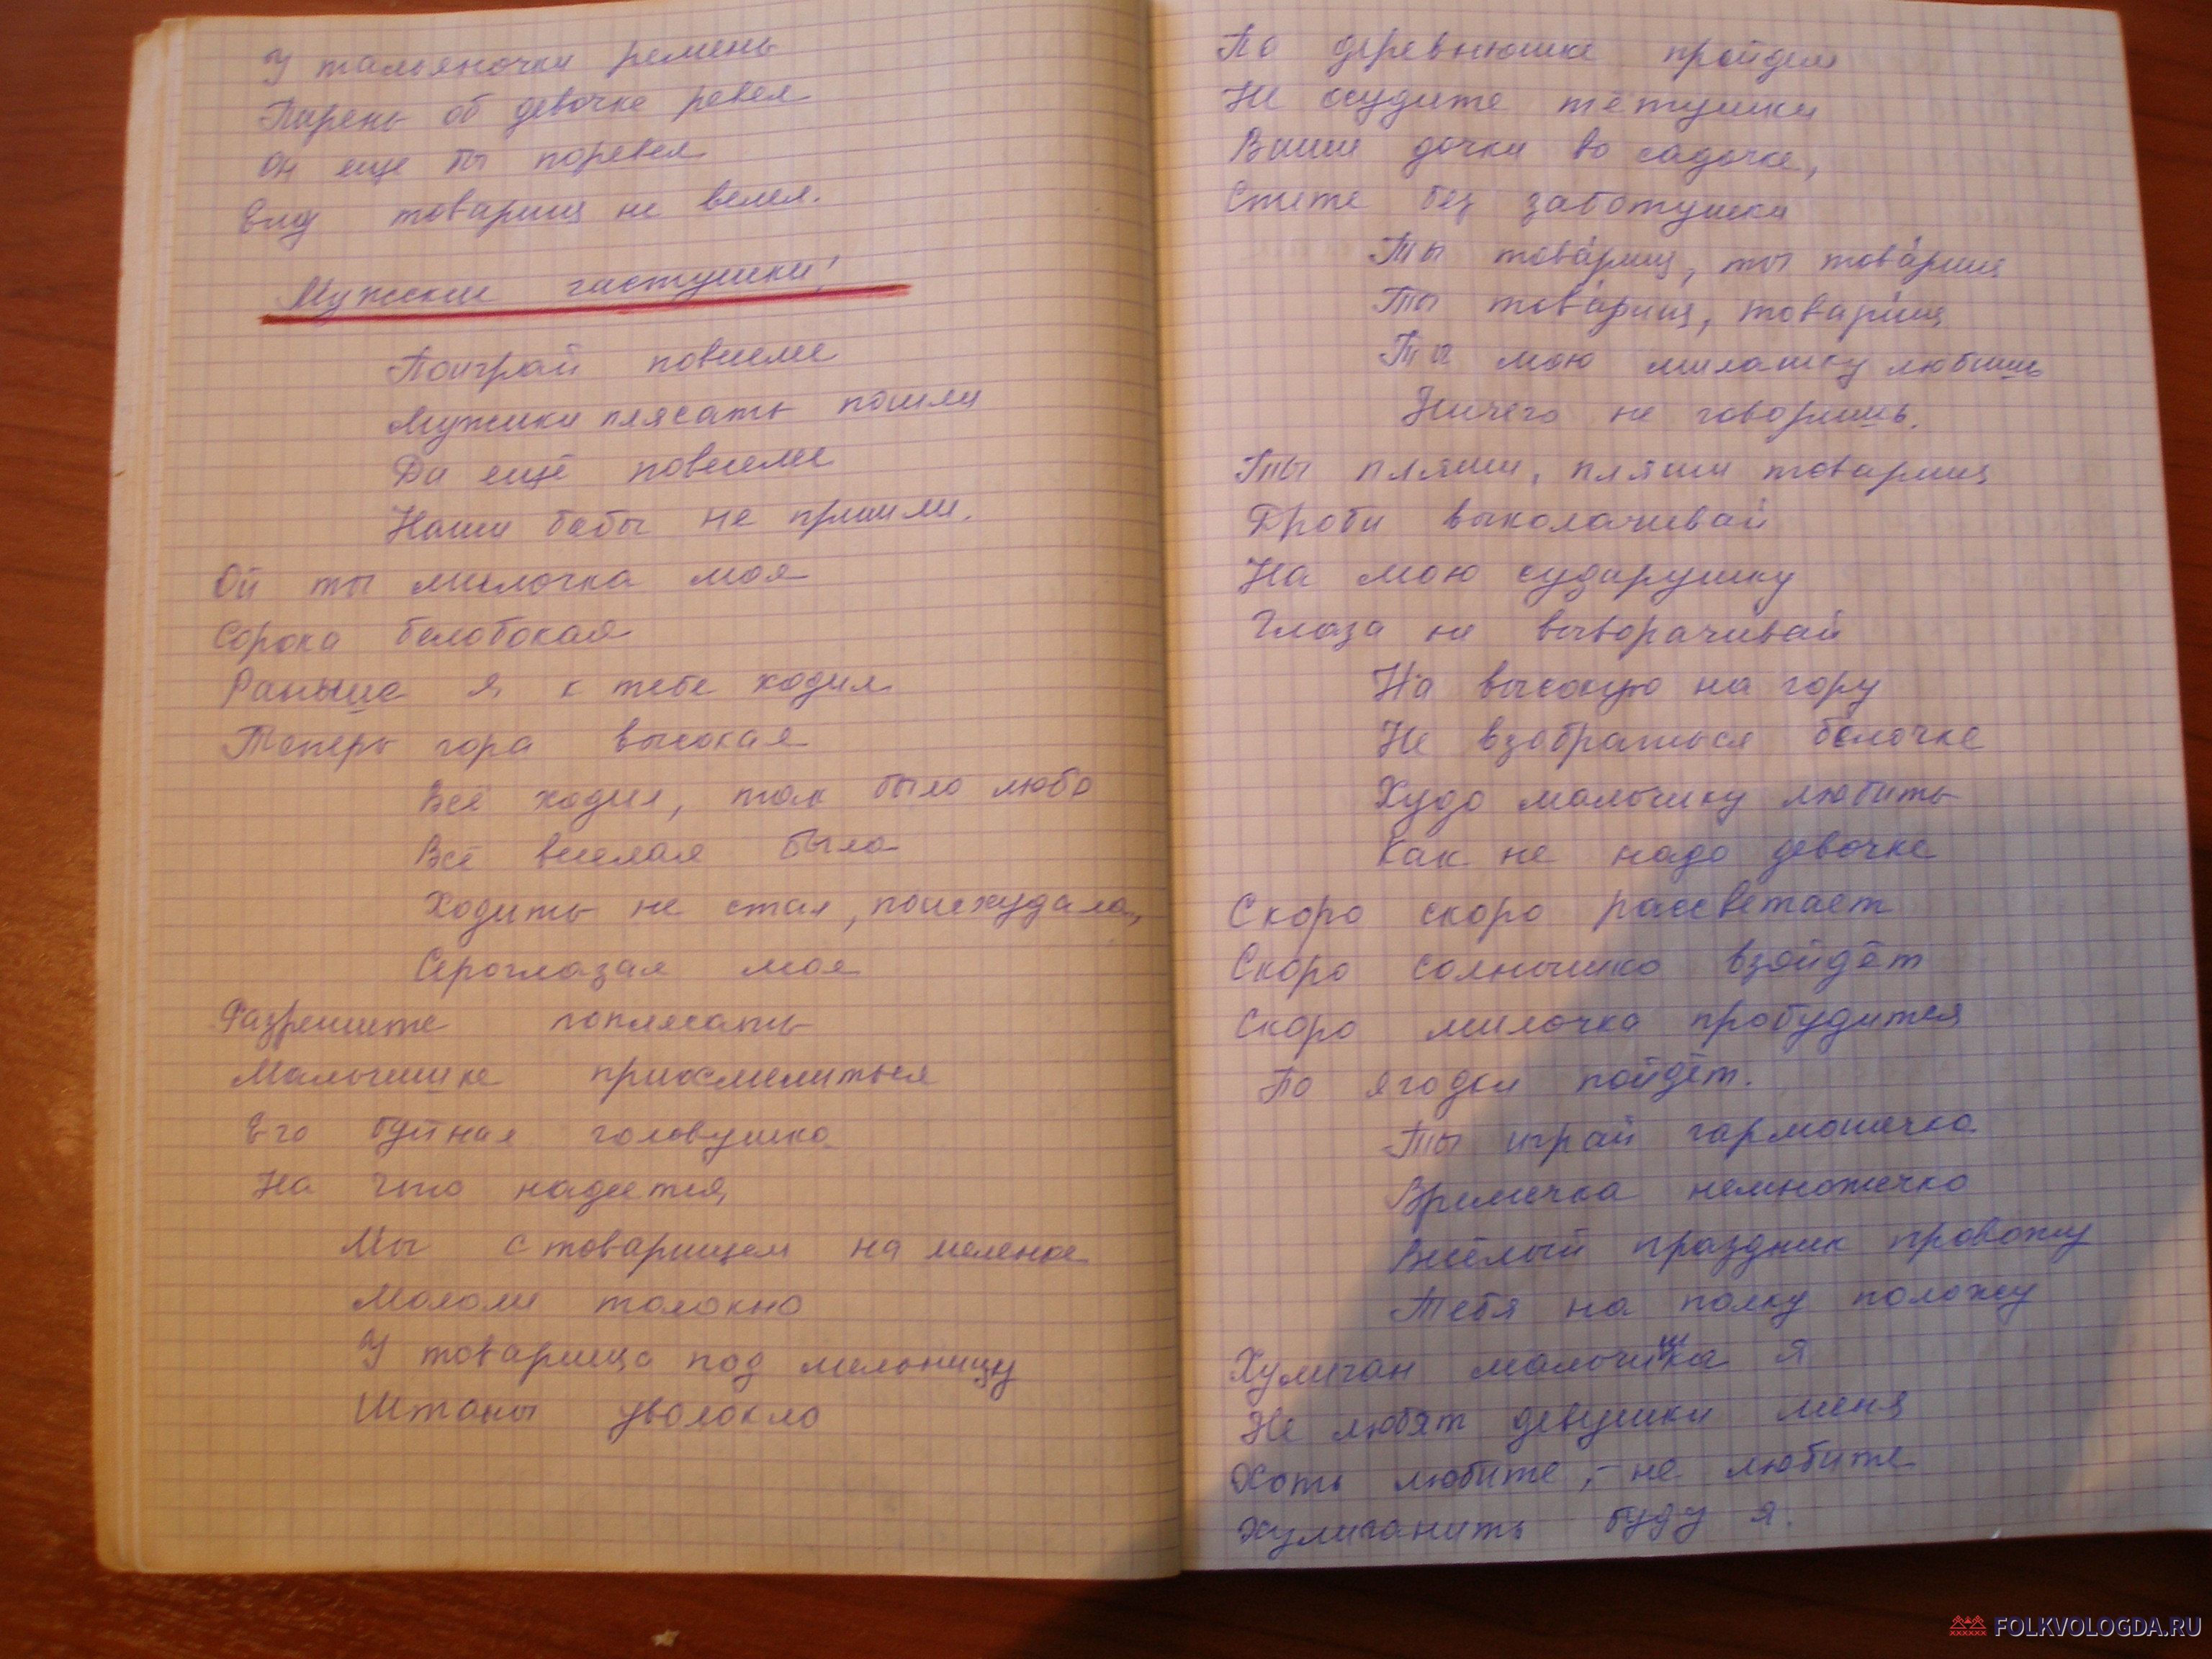 У тальяночки ремень
Парень об девочке ревел
Он еще бы поревел
Ему товарищ не велел.
Мужские частушки!
Поиграй повеселе
Мужики плясать пошли
Да ещё повеселе
Наши бабы не пришли.
Ой ты милочка моя
Сорока белобокая
Раньше я к тебе ходил
Теперь гора высокая
Всё ходил, так было любо
Всё веселая была
Ходить не стал, поисхудала,
Сероглазая моя
Разрешите поплясать
Мальчишке приосмелиться
Его буйная головушка
На что надеется
Мы с товарищем на меленке
Мололи толокно
У товарища под мельницу
Штаны уволокло
По деревнюшке пройдем
Не осудите тётушки
Ваши дочки во садочке,
Спите без заботушки
Ты това́рищ, ты това́рищ
Ты това́рищ, товари́щ
Ты мою милашку любишь
Ничего не говоришь.
Ты пляши, пляши товарищ
Дроби выколачивай
На мою сударушку
Глаза не выворачивай
На высокую на гору
Не взобраться белочке
Худо мальчику любить
Как не надо девочке
Скоро скоро рассветает
Скоро солнышко взойдёт
Скоро милочка пробудится
По ягодки пойдёт.
Ты играй гармошечка
Времечка немножечко
Весёлый праздник провожу
Тебя на полку положу
Хулиган мальчишка я
Не любят девушки меня
Хоть любите, - не любите
Хулиганить буду я.
FOLKVOLOGDA.RU